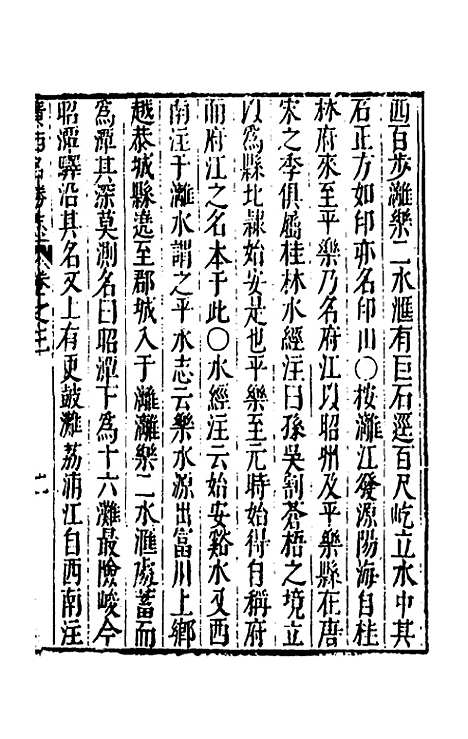 西百步灕樂二水滙有巨石逕百尺屹立水中其
石正方如印亦名印山〇按灕江發源陽海自桂
林府來至平樂乃名府江以昭州及平樂縣在唐
宋之季俱屬桂林水經注曰孫吳割蒼梧之境立
以爲縣北隷始安是也平樂至元時始得自稱府
而府江之名本于此〇水經注云始安谿水又西
南注于灕水謂之平水志云樂水源出富川上鄉
越恭城縣遶至郡城入于灕灕樂二水滙處蓄而
爲潭其深莫測名曰昭潭下爲十六灘最險峻今
昭潭驛沿其名又上有更鼓灘荔浦江自西南注
廣西名勝志 卷之